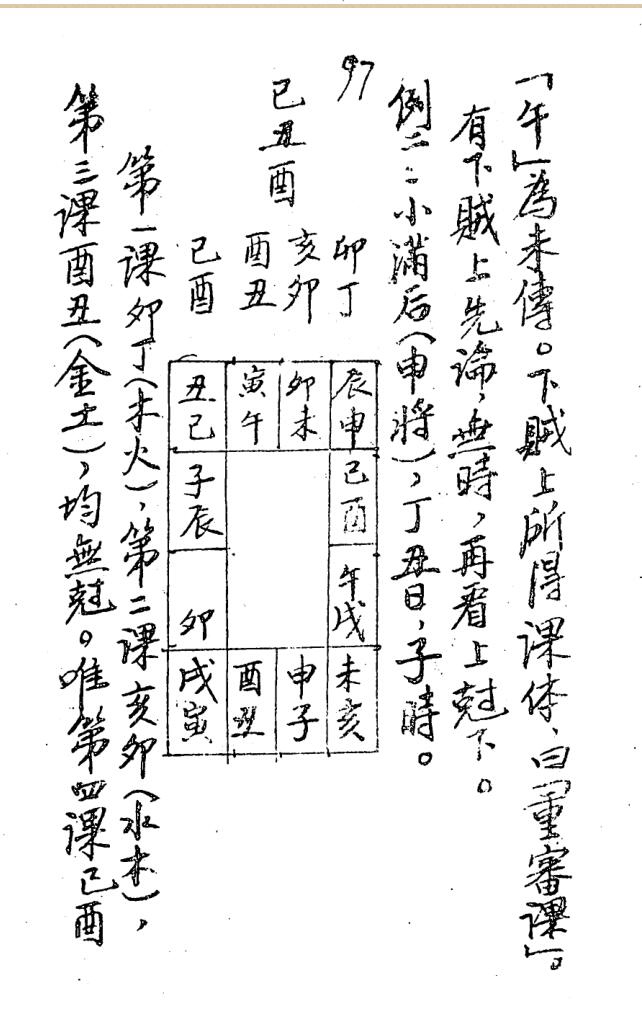 「午」為末傳。下賊上所得课体、曰「重審课」。
有下賊上先論，無時，再看上尅下。
例二：小满后(申將)，丁丑日、子時。
97
卯丁
亥卯
酉丑
已酉
已丑酉
辰申
卯未
寅午
丑已
已酉
子辰
午戌
卯
未亥
申子
酉丑
戌寅
第一课卯丁(木火)、第二课亥卯(水木)，
第三课酉丑(金土)，均無尅。唯第四课已酉